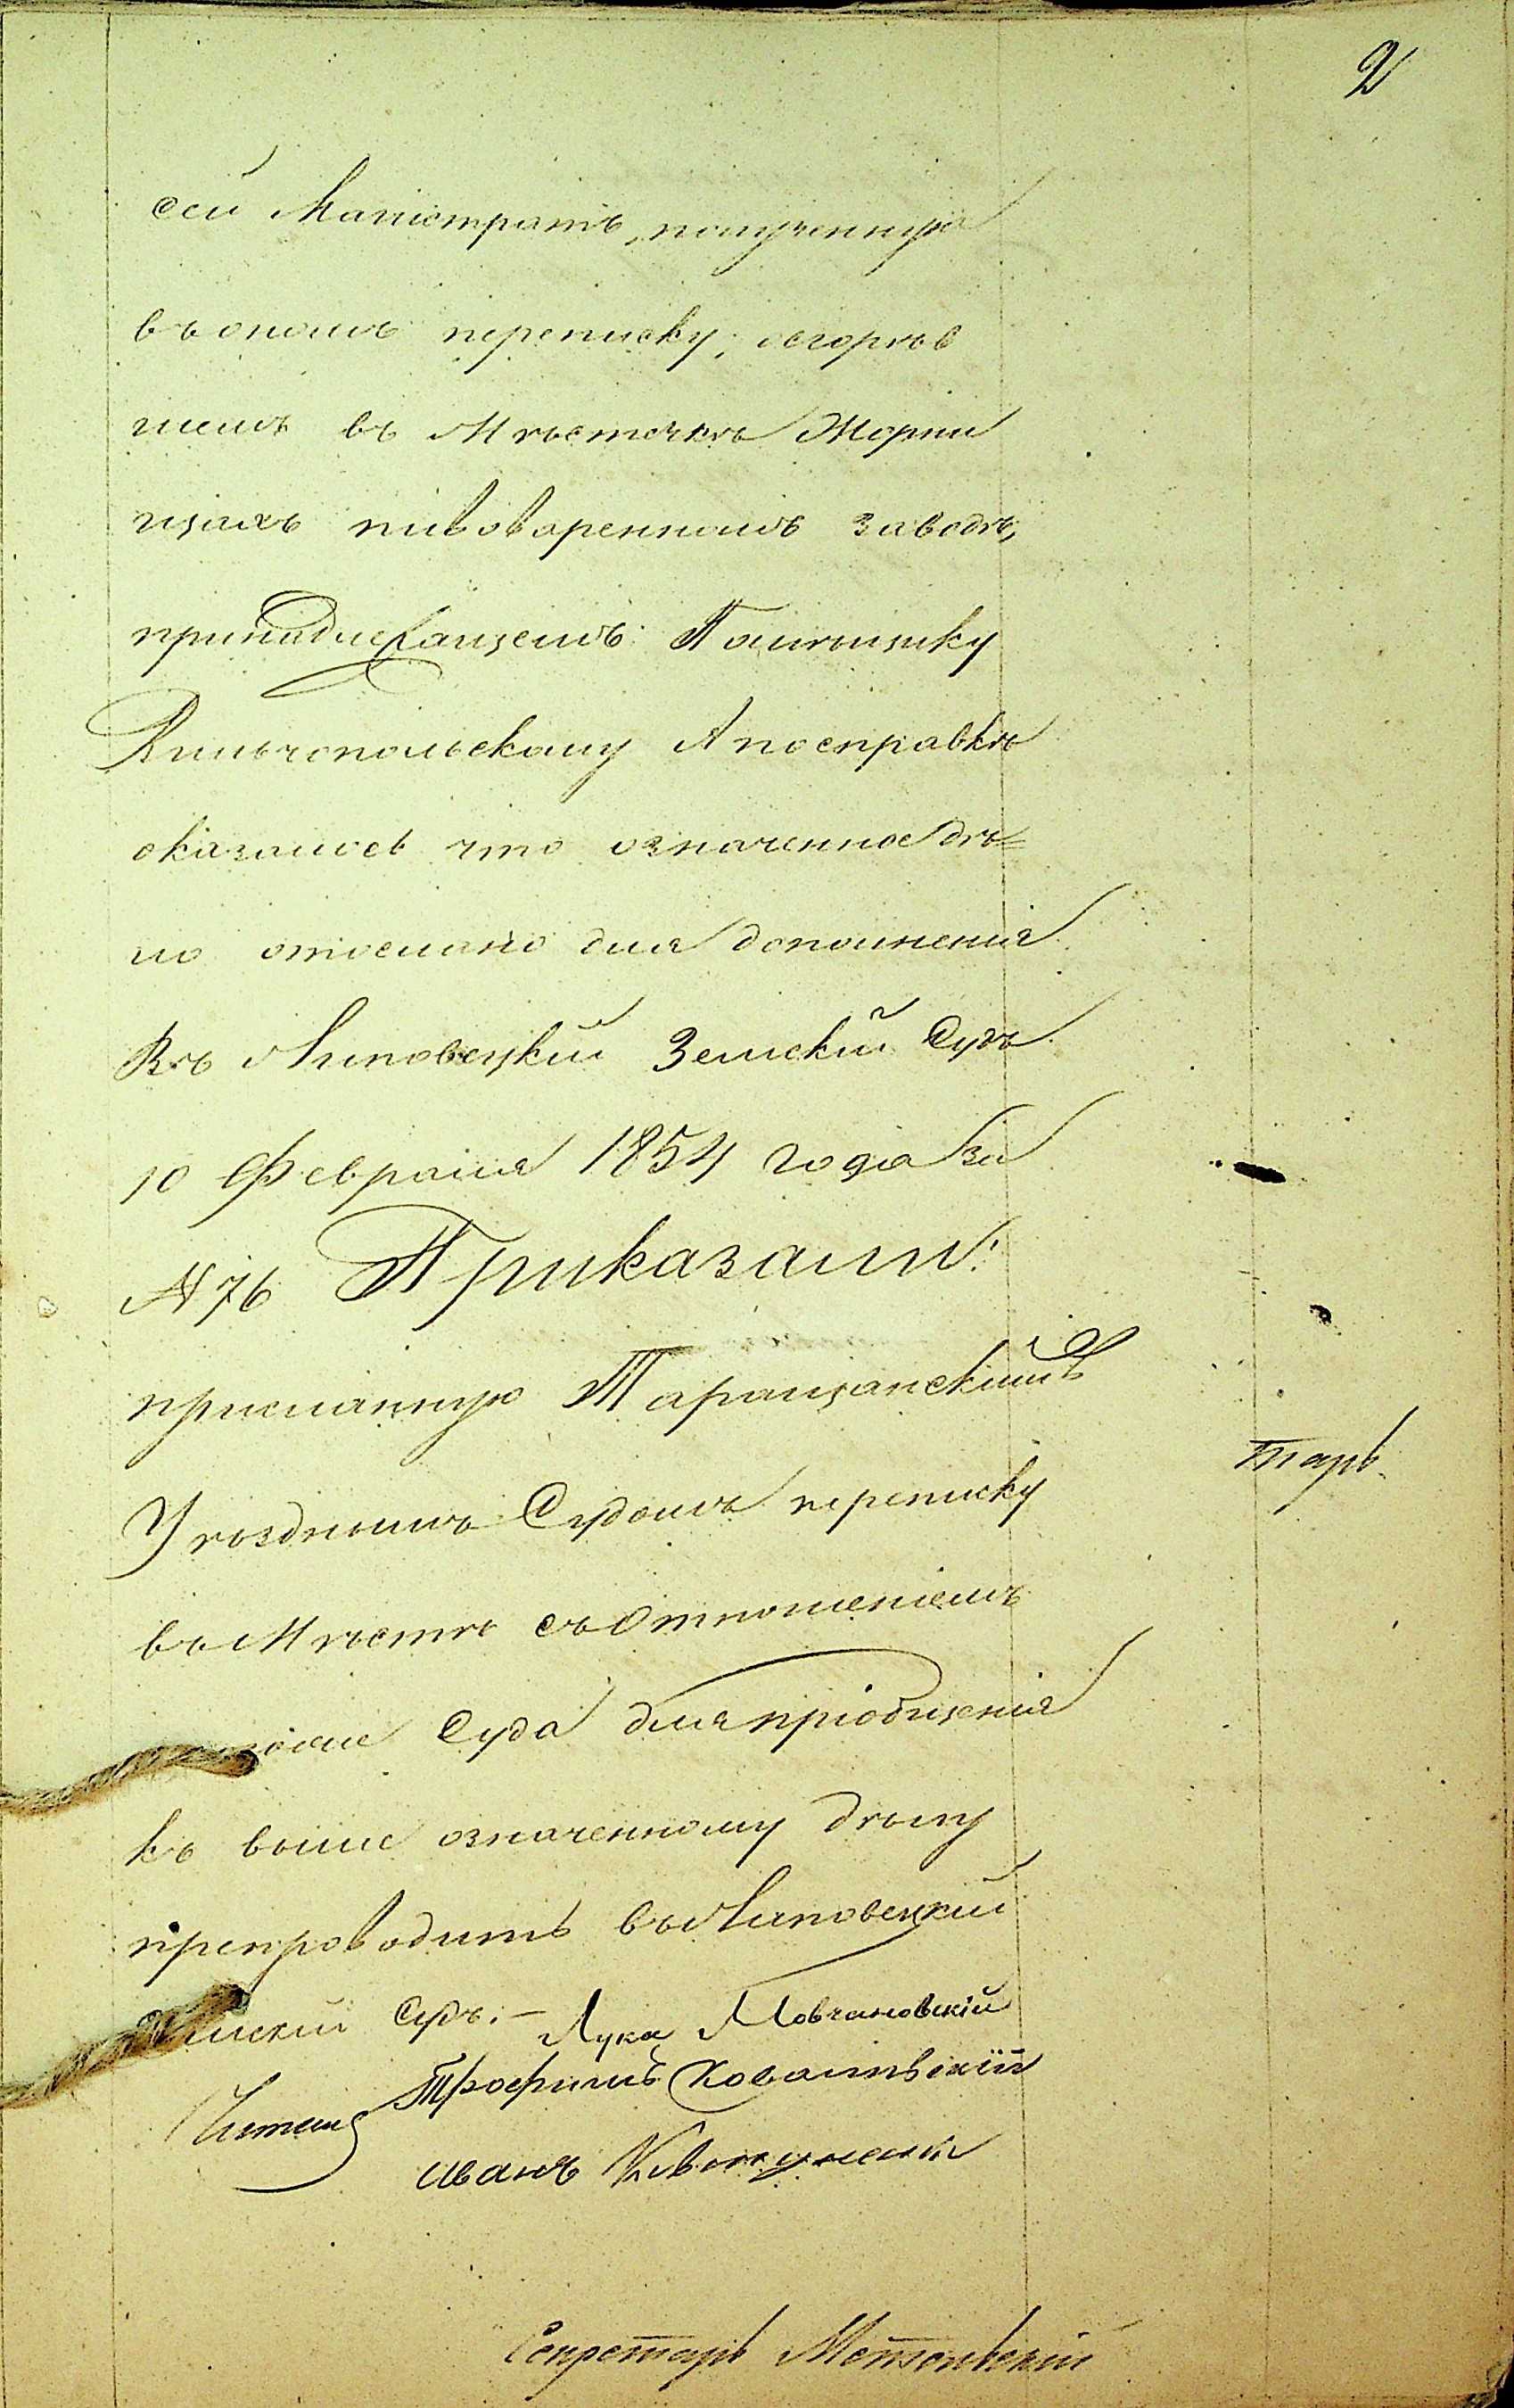 2
сей Магистратъ, полученную
въ ономъ переписку, осгорѣв
шемъ въ Мѣстечкѣ Жорни
щахъ пивоваренномъ заводѣ,
принадлежащемъ Помѣщику
А посправкѣ
оказалось что означенное дѣ=
ло отослано для дополненія
Въ Липовецкій Земскій Судъ
10 Февраля 1854 года за
№ 76 Приказали:
присланную Таращанскимъ
Уѣзднымъ Судомъ переписку
въ Мѣстѣ съ Отношеніемъ
Суда для пріобщенія
къ выше означенному дѣлу
препроводить въ Липовецкій
Земскій Судъ. – Лука
Трофимъ Ковалевскій
Иванъ
тарь
Секретарь